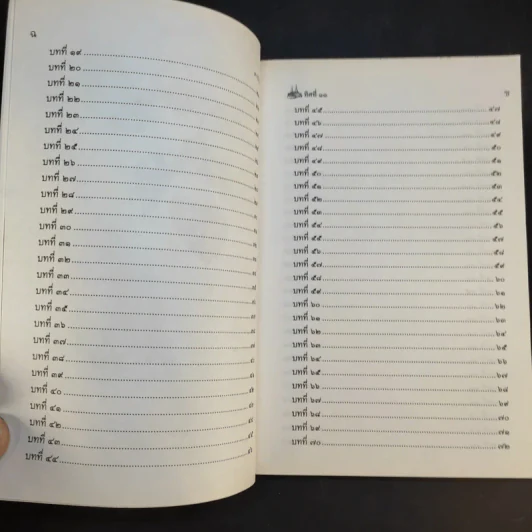 ฉ
บทที่ ๑๙
บทที่ ๒๐
บทที่ ๒๑
บทที่ ๒๒
บทที่ ๒๓
บทที่ ๒๔
บทที่ ๒๕
บทที่ ๒๖
บทที่ ๒๗
บทที่ ๒๘
บทที่ ๒๙
บทที่ ๓๐
บทที่ ๓๑
บทที่ ๓๒
บทที่ ๓๓
บทที่ ๓๔
บทที่ ๓๕
บทที่ ๓๖
บทที่ ๓๗
บทที่ ๓๘
บทที่ ๓๙
บทที่ ๔๐
บทที่ ๔๑
บทที่ ๔๒
บทที่ ๔๓
บทที่ ๔๔
ทิศที่ ๑๑
บทที่ ๔๕ ๔๗
บทที่ ๔๖ ๔๘
บทที่ ๔๗ ๔๙
บทที่ ๔๘ ๕๐
บทที่ ๔๙ ๕๑
บทที่ ๕๐ ๕๒
บทที่ ๕๑ ๕๓
บทที่ ๕๒ ๕๔
บทที่ ๕๓ ๕๕
บทที่ ๕๔ ๕๖
บทที่ ๕๕ ๕๗
บทที่ ๕๖ ๕๘
บทที่ ๕๗ ๕๙
บทที่ ๕๘ ๖๐
บทที่ ๕๙ ๖๑
บทที่ ๖๐ ๖๒
บทที่ ๖๑ ๖๓
บทที่ ๖๒ ๖๔
บทที่ ๖๓ ๖๕
บทที่ ๖๔ ๖๖
บทที่ ๖๕ ๖๗
บทที่ ๖๖ ๖๘
บทที่ ๖๗ ๖๙
บทที่ ๖๘ ๗๐
บทที่ ๖๙ ๗๑
บทที่ ๗๐ ๗๒